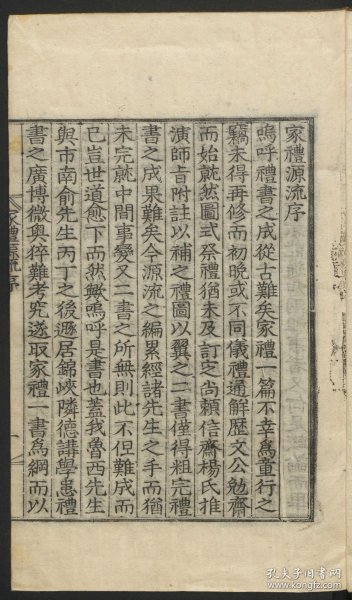 家禮源流序
嗚呼禮書之成從古難矣家禮一篇不幸為童行之
竊未得再修而初晚或不同儀禮通解歷文公勉齋
而始就然圖式祭禮猶未及訂定尚賴信齋楊氏推
演師旨附註以補之禮圖以翼之二書僅得粗完禮
書之成果難矣今源流之編累經諸先生之手而猶
未完就中間事變又二書之所無則此不但難成而
已豈世道愈下而然歟嗚呼是書也蓋我魯西先生
與市南俞先生丙丁之後遯居錦峽隣德講學患禮
書之廣博微奧猝難考究遂取家禮一書為綱而以
家禮源流序
孔夫子旧书网
www.kongfz.com